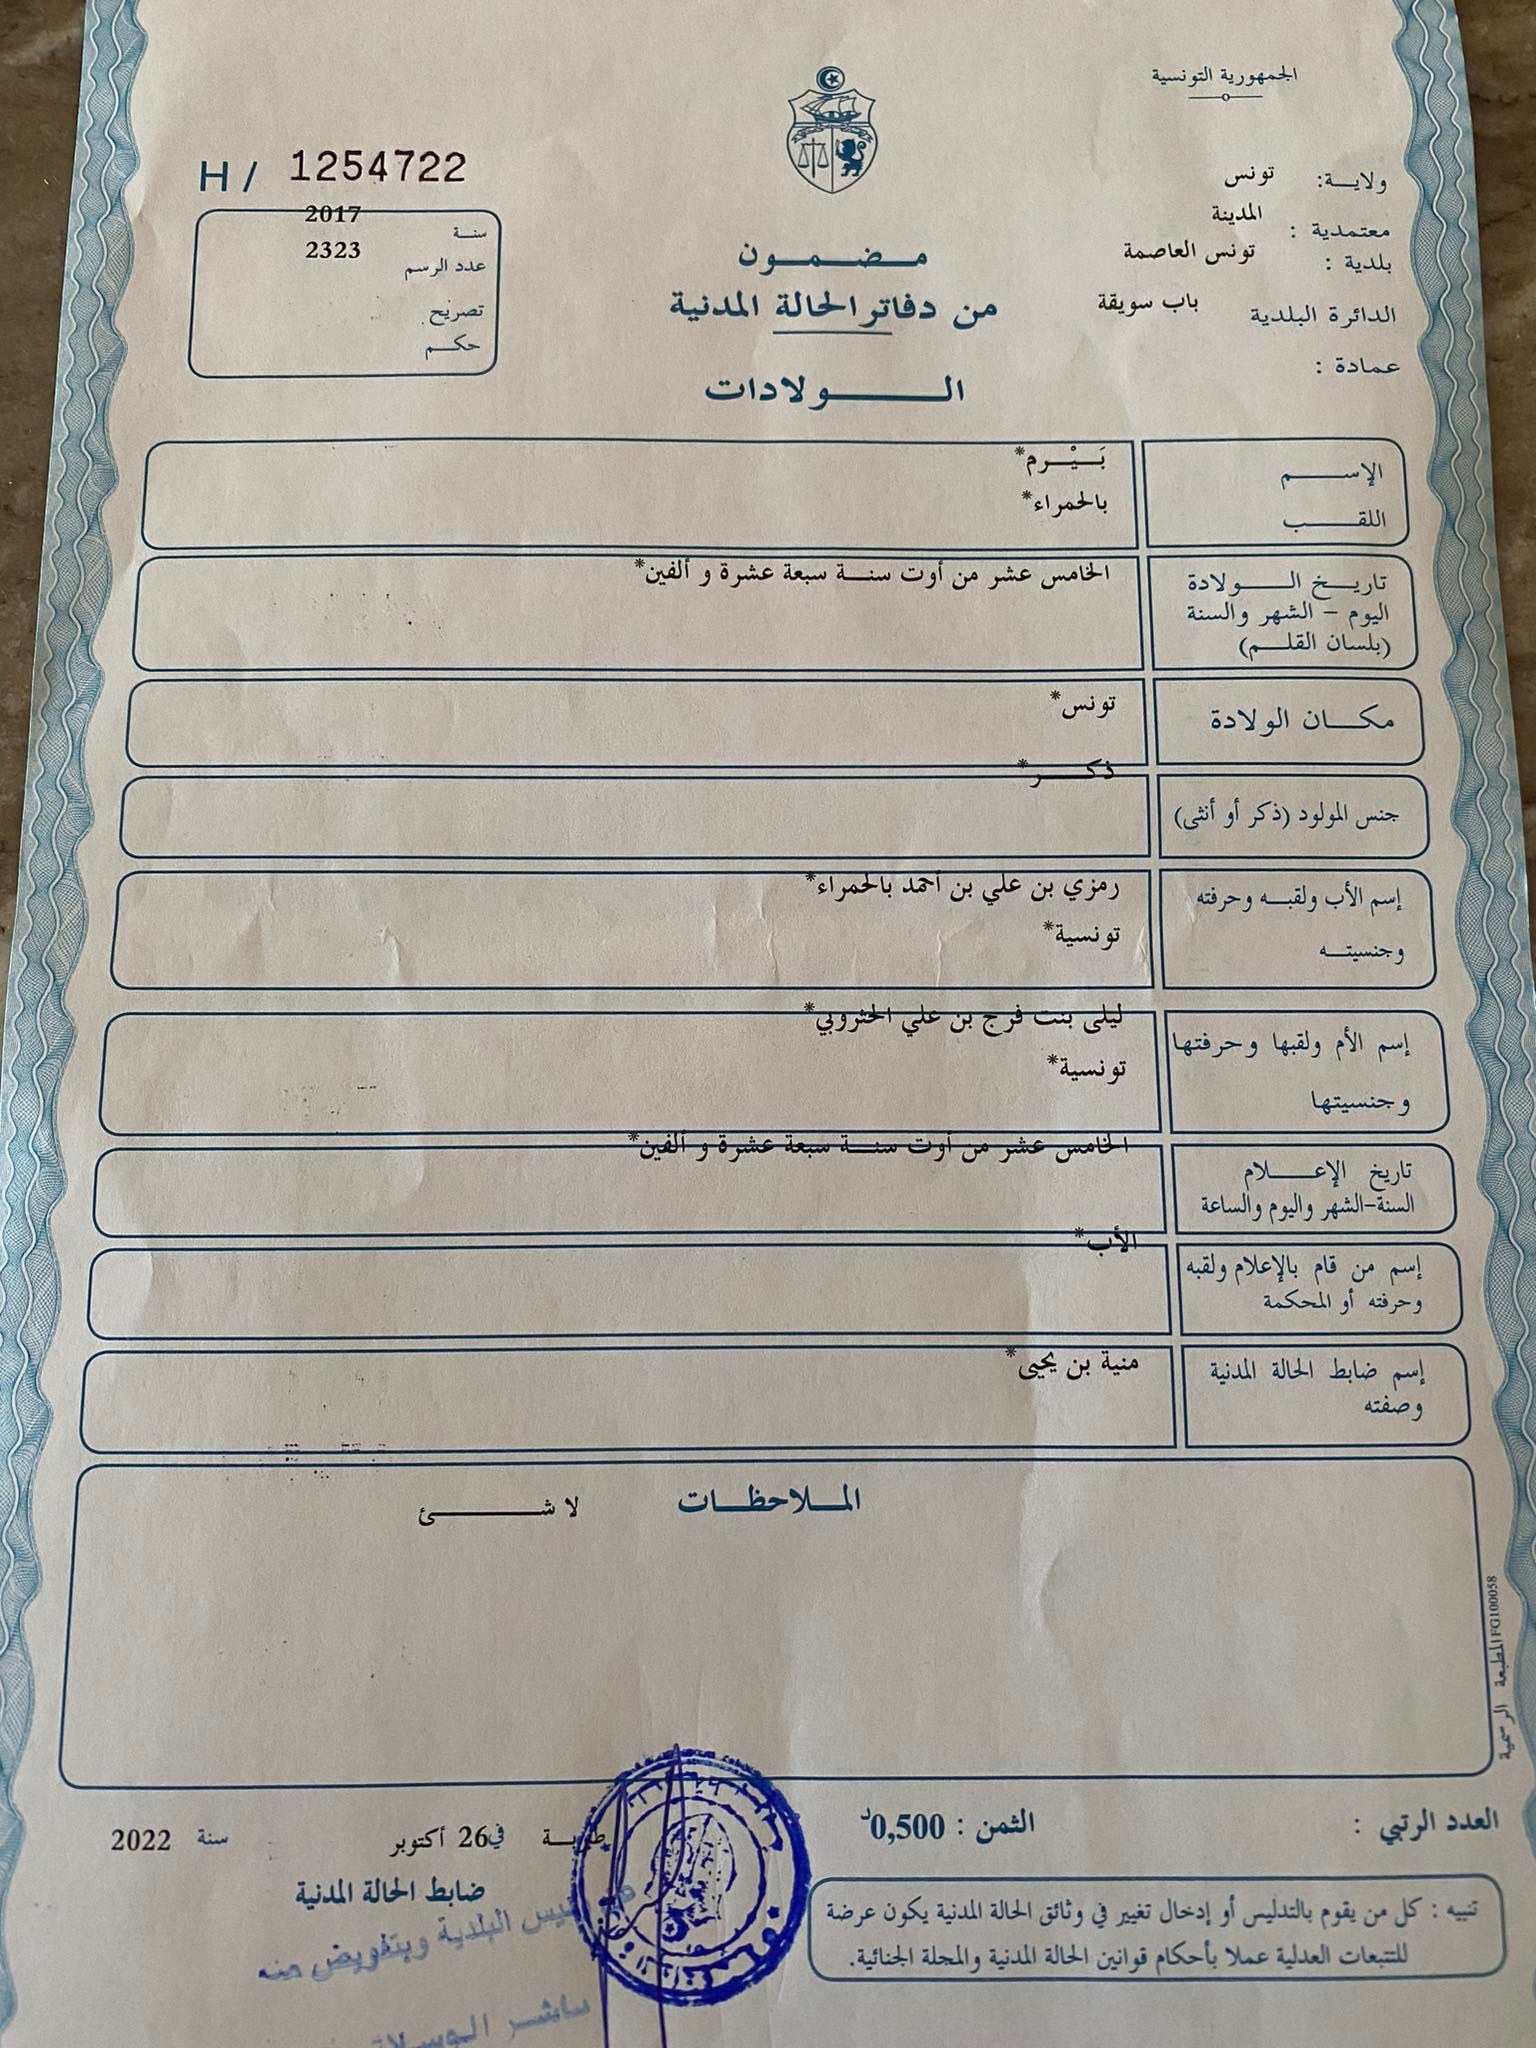 الجمهورية التونسية
ولاية: تونس
معتمدية : المدينة
بلدية : تونس العاصمة
الدائرة البلدية باب سويقة
عمادة :
H / 1254722
سنة 2017
عدد الرسم 2323
تصريح
حكم
مضمون
من دفاتر الحالة المدنية
الولادات
الإسم بَيْرم*
اللقب بالحمراء*
تاريخ الولادة الخامس عشر من أوت سنة سبعة عشرة و ألفين*
اليوم - الشهر والسنة
(بلسان القلم)
مكان الولادة تونس*
جنس المولود (ذكر أو أنثى) ذكر*
إسم الأب ولقبه وحرفته رمزي بن علي بن أحمد بالحمراء*
وجنسيته تونسية*
إسم الأم ولقبها وحرفتها ليلى بنت فرج بن علي الحثروبي*
وجنسيتها تونسية*
تاريخ الإعلام الخامس عشر من أوت سنة سبعة عشرة و ألفين*
السنة-الشهر واليوم والساعة
إسم من قام بالإعلام ولقبه الأب*
وحرفته أو المحكمة
إسم ضابط الحالة المدنية منية بن يحيى*
وصفته
الملاحظات لا شئ
المطبعة الرسمية FG100058
العدد الرتبي :
الثمن : 0,500د
طبربة في 26 أكتوبر سنة 2022
ضابط الحالة المدنية
البلدية وبتفويض منه
تنبيه : كل من يقوم بالتدليس أو إدخال تغيير في وثائق الحالة المدنية يكون عرضة
للتتبعات العدلية عملا بأحكام قوانين الحالة المدنية والمجلة الجنائية.